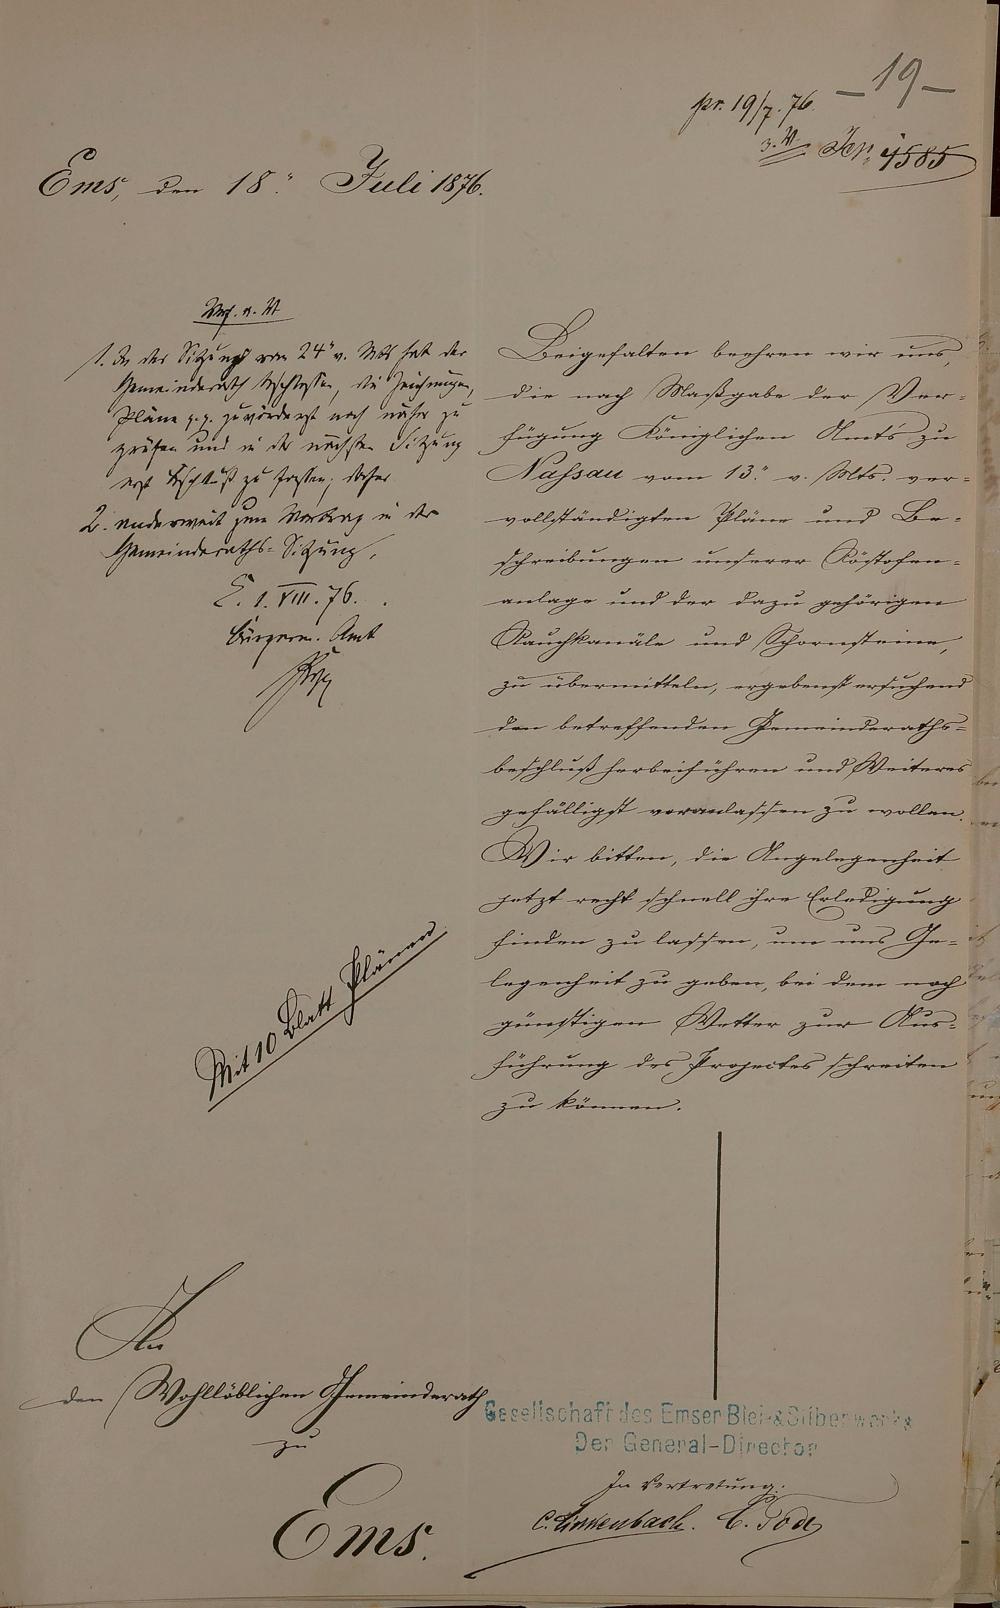 -19-
pr. 19/7. 76.
z. W. Jn. 4585
Ems, den 18." Juli 1876.
Beigefalten beehren wir uns,
die nach Maßgabe der Ver-
fügung Königlichen Amts zu
Nassau vom 13." v. Mts. ver-
vollständigten Pläne und Be-
schreibungen unserer Röstofen-
anlage und der dazu gehörigen
Rauchkanäle und Schornsteine,
zu übermitteln, ergebenst ersuchend
den betreffenden Gemeinderaths-
beschluß herbeiführen und Weiteres
gefälligst veranlassen zu wollen.
Wir bitten, die Angelegenheit
jetzt recht schnell ihre Erledigung
finden zu lassen, um uns Ge-
legenheit zu geben, bei dem noch
günstigen Wetter zur Aus-
führung des Projectes schreiten
zu können.
Gesellschaft des Emser Blei- & Silberwerks
Der General-Director
In Vertretung:
C. Linkenbach. C. Tode
1. In der Sitzung vom 24" v. Mts hat der
Gemeinderath beschlossen, die Zeichnungen,
Pläne p.p. zuvörderst noch näher zu
prüfen und in der nächsten Sitzung
erst Beschluß zu fassen; daher
2. anderweit zum Vortrag in der
Gemeinderaths-Sitzung.
E. 1. VIII. 76.
Bürgerm. Amt
Mit 10 Blatt Plänen
An
den Wohllöblichen Gemeinderath
zu
Ems.